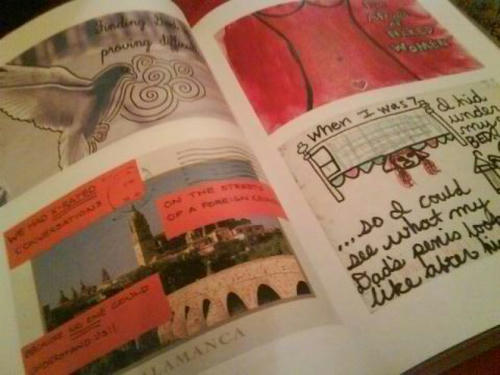 Finding God is
proving difficult
I'm
Afraid
of
NAKED
WOMEN
WE HAD X-RATED
CONVERSATIONS
ON THE STREETS
OF A FOREIGN COUNTRY
BECAUSE NO ONE COULD
UNDERSTAND US!!
SALAMANCA
When I was 7
I hid
under
my
BED
...so I could
see what my
Dad's penis looked
like after